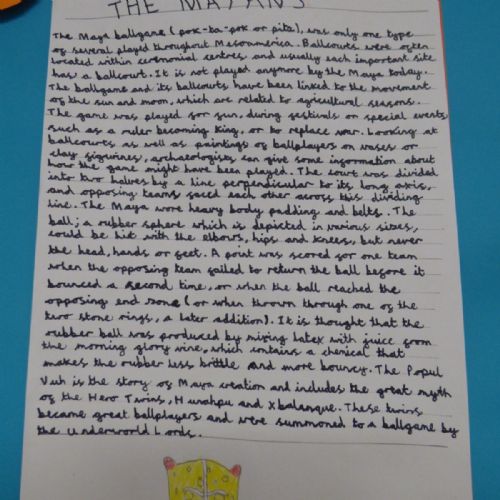 THE MAYANS
The Maya ballgame (pok-ta-pok or pitz), was only one type
of several played throughout Mesoamerica. Ballcourts were often
located within ceremonial centres, and usually each important site
has a ballcourt. It is not played anymore by the Maya today.
The ballgame and its ballcourts have been linked to the movement
of the sun and moon, which are related to agricultural seasons.
The game was played for fun, during festivals or special events
such as a ruler becoming King, or to replace war. Looking at
ballcourts as well as paintings of ballplayers on vases or
clay figurines, archaeologists can give some information about
how the game might have been played. The court was divided
into two halves by a line perpendicular to its long axis,
and opposing teams faced each other across this dividing
line. The Maya wore heavy body padding and belts. The
ball; a rubber sphere which is depicted in various sizes,
could be hit with the elbows, hips and knees, but never
the head, hands or feet. A point was scored for one team
when the opposing team failed to return the ball before it
bounced a second time, or when the ball reached the
opposing end zone (or when thrown through one of the
two stone rings, a later addition). It is thought that the
rubber ball was produced by mixing latex with juice from
the morning glory vine, which contains a chemical that
makes the rubber less brittle and more bouncy. The Popul
Vuh is the story of Maya creation and includes the great myth
of the Hero Twins, Hunahpu and Xbalanque. These twins
became great ballplayers and were summoned to a ballgame by
the Underworld Lords.